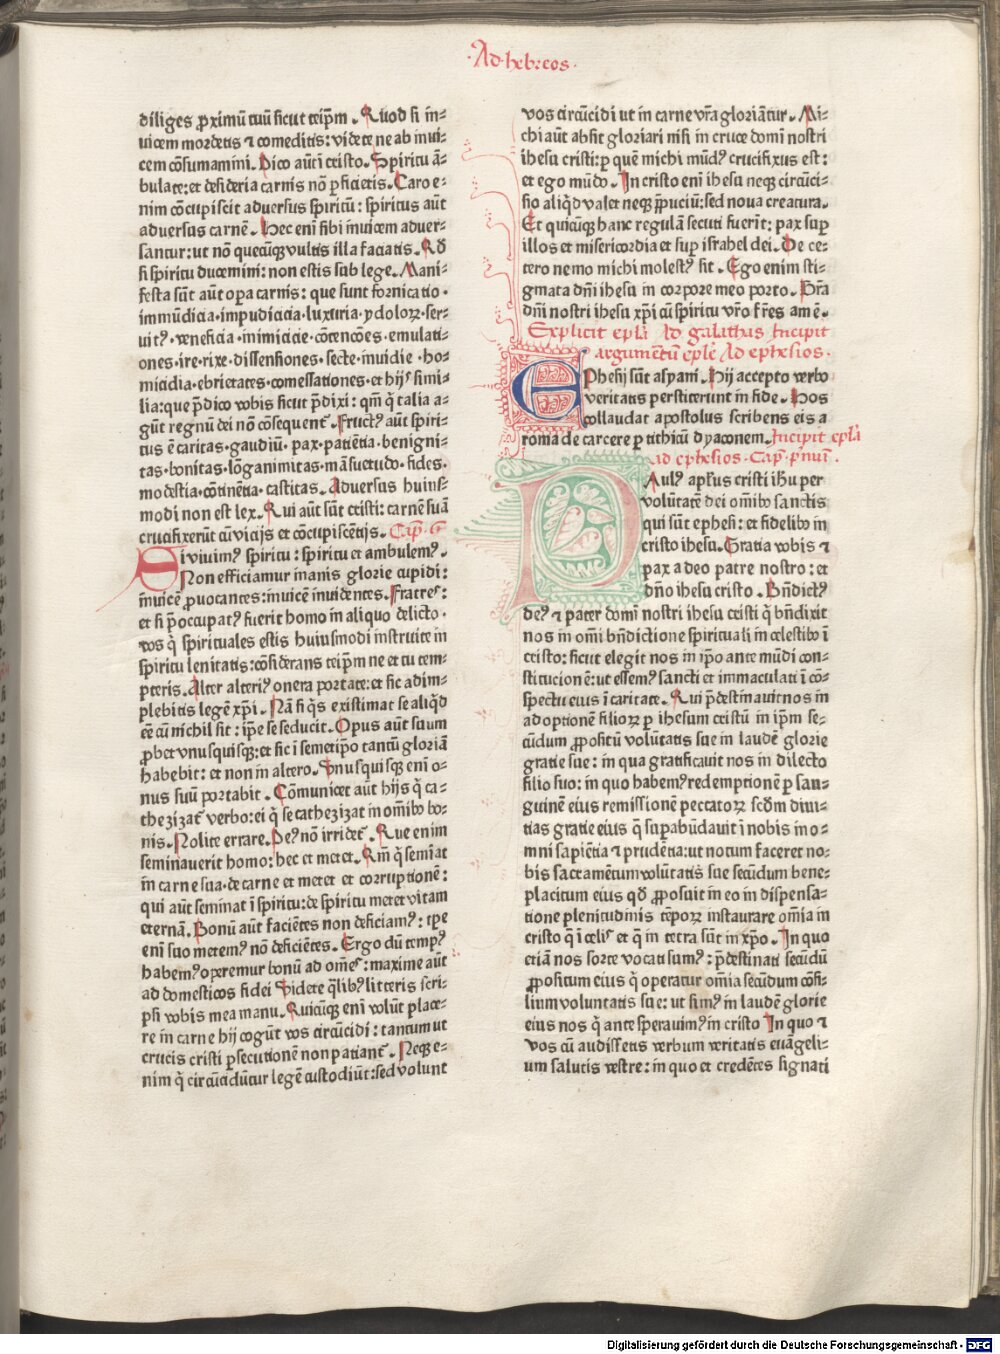 ·Ad·heb:eos·
diliges ꝓximū tuū ſicut teip̄m. Quod ſi in⸗
uicem mordetis ⁊ comeditis: videte ne ab inui⸗
cem cōſumamini. Dico aūt ī criſto. Spiritu ā⸗
bulate: et deſideria carnis nō ꝑficietis. Caro e⸗
nim cōcupiſcit adverſus ſpiritū: ſpiritus aūt
adverſus carnē. Hec eni ſibi inuicem adver⸗
ſantur: ut nō quecūqꝫ vultis illa faciatis. Qđ
ſi ſpiritu ducemini: non eſtis ſub lege. Mani⸗
feſta ſūt aūt oꝑa carnis: que ſunt fornicatio·
immūdicia·impudicia·luxuria·ydoloꝝ·ſer⸗
uitꝰ·veneficia·inimicicie·cōtencōes·emulati⸗
ones·ire·rixe·diſſenſiones·ſecte·inuidie·ho⸗
micidia·ebrietates·comeſſationes·et hijs ſimi⸗
lia: que p̄dico vobis ſicut p̄dixi: qm̄ q̄ talia a⸗
gūt regnū dei nō cōſequent̄. Fructꝰ aūt ſpiri⸗
tus ē caritas·gaudiū·pax·patiētia·benigni⸗
tas·bonitas·lōganimitas·māſuetudo·fides·
modeſtia·cōtinētia·caſtitas. Adverſus huiuſ⸗
modi non eſt lex. Qui aūt ſūt criſti: carnē ſuā
crucifixerūt cū vicijs et cōcupiſcētijs. Cap̄·6
Si viuimꝰ ſpiritu: ſpiritu et ambulemꝰ.
Non efficiamur inanis glorie cupidi:
inuicē ꝓuocantes: inuicē inuidentes. Fratres:
et ſi p̄occupatꝰ fuerit homo in aliquo delicto·
vos q̄ ſpirituales eſtis huiuſmodi inſtruite in
ſpiritu lenitatis: cōſiderans teip̄m ne et tu tem⸗
pteris. Alter alteriꝰ onera portate: et ſic adim⸗
plebitis legē xp̄i. Nā ſi q̄s exiſtimat ſe aliqđ
eē cū nichil ſit: ip̄e ſe ſeducit. Opus aūt ſuum
ꝓbet vnuſquiſqꝫ: et ſic ī ſemetip̄o tantū gloriā
habebit: et non in altero. Vnuſquiſqꝫ eni o⸗
nus ſuū portabit. Cōmunicet aūt hijs q̄ ca⸗
thezizat̄ verbo: ei q̄ ſe cathezizat in om̄ibꝰ bo⸗
nis. Nolite errare. Deꝰ nō irridet̄. Que enim
ſeminauerit homo: hec et metet. Qm̄ q̄ ſemīat
in carne ſua·de carne et metet et corruptionē:
qui aūt ſeminat ī ſpiritu: de ſpiritu metet vitam
eternā. Bonū aūt faciētes non deficiamꝰ: tp̄e
eni ſuo metemꝰ nō deficiētes. Ergo dū tempꝰ
habemꝰ operemur bonū ad om̄es: maxime aūt
ad domeſticos fidei Videte q̄libꝰ litteris ſcri⸗
pſi vobis mea manu. Quicūqꝫ eni volūt place⸗
re in carne hij cogūt vos circūcidi: tantum ut
crucis criſti ꝑſecutionē non patiant̄. Neqꝫ e⸗
nim q̄ circūcidūtur legē cuſtodiūt: ſed volunt
vos circūcidi ut in carne vr̄a gloriātur. Mi⸗
chi aūt abſit gloriari niſi in cruce domī noſtri
iheſu criſti: ꝑ quē michi mūdꝰ crucifixus eſt:
et ego mūdo. In criſto eni iheſu neqꝫ circūci⸗
ſio aliqđ valet neqꝫ p̄puciū: ſed noua creatura.
Et quicūqꝫ hanc regulā ſecuti fuerīt: pax ſuꝑ
illos et miſericordia et ſuꝑ iſrahel dei. De ce⸗
tero nemo michi moleſtꝰ ſit. Ego enim ſti⸗
gmata dn̄i iheſu in corpore meo porto. Gr̄a
dn̄i noſtri iheſu xp̄i cū ſpiritu vr̄o fr̄es amē.
Explicit epl̄a Ad galathas Incipit
argumentū epl̄e Ad epheſios·
Epheſij ſūt aſyani. Hij accepto verbo
veritatis perſtiterunt in fide. Hos
collaudat apoſtolus ſcribens eis a
roma de carcere ꝑ tithicū dyaconem. Incipit epl̄a
ad epheſios·Cap̄·p̄mū·
Paulꝰ apl̄us criſti ih̄u per
volūtatē dei om̄ibꝰ ſanctis
qui ſūt epheſi: et fidelibꝰ in
criſto iheſu. Gratia vobis ⁊
pax a deo patre noſtro: et
dn̄o iheſu criſto. Bn̄dictꝰ
deꝰ ⁊ pater domī noſtri iheſu criſti q̄ bn̄dixit
nos in omi bn̄dictione ſpirituali in celeſtibꝰ ī
criſto: ſicut elegit nos in ip̄o ante mūdi con⸗
ſtitucionē: ut eſſemꝰ ſancti et immaculati ī cō⸗
ſpectu eius ī caritate. Qui p̄deſtinauit nos in
adoptionē filioꝝ ꝑ iheſum criſtū in ip̄m ſe⸗
cūdum ꝓpoſitū volūtatis ſue in laudē glorie
gratie ſue: in qua gratificauit nos in dilecto
filio ſuo: in quo habemꝰ redemptionē ꝑ ſan⸗
guinē eius remiſſionē peccatoꝝ ſcd̄m diui⸗
tias gratie eius q̄ ſuꝑabūdauit ī nobis in o⸗
mni ſapiētia ⁊ prudētia: ut notum faceret no⸗
bis ſacramētum volūtatis ſue ſecūdum bene⸗
placitum eius qđ ꝓpoſuit in eo in diſpenſa⸗
tione plenitudinis tēpoꝝ inſtaurare om̄ia in
criſto q̄ ī celis et q̄ in terra ſūt in xp̄o. In quo
etiā nos ſorte vocati ſumꝰ: p̄deſtinati ſecūdū
ꝓpoſitum eius q̄ operatur om̄ia ſecūdum cōſi⸗
lium voluntatis ſue: ut ſimꝰ in laudē glorie
eius nos q̄ ante ſperauimꝰ in criſto In quo ⁊
vos cū audiſſetis verbum veritatis euāgeli⸗
um ſalutis veſtre: in quo et credētes ſignati
Digitalisierung gefördert durch die Deutsche Forschungsgemeinschaft - DFG